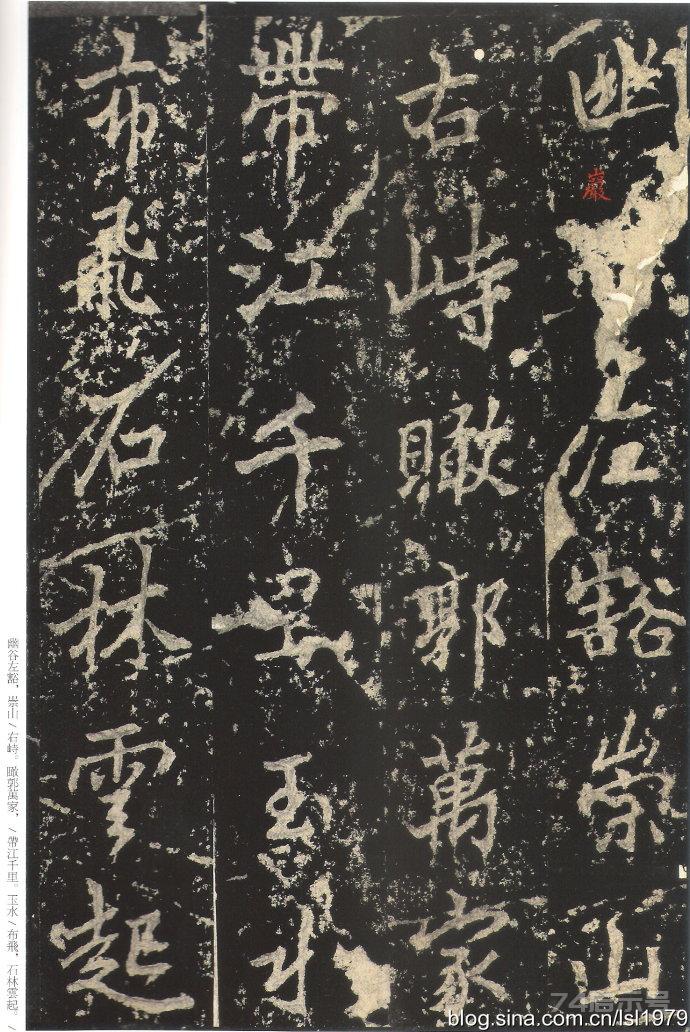 幽左豁崇山
巖
右峙瞰郭萬家
帶江千里玉水
布飛石林雲起
幽谷左豁，崇山/右峙。瞰郭萬家，/帶江千里。玉水/布飛，石林雲起。/
blog.sina.com.cn/lsl1979